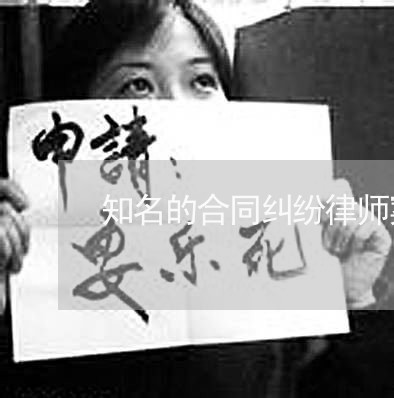 申請：
知名的合同纠纷律师
安乐死